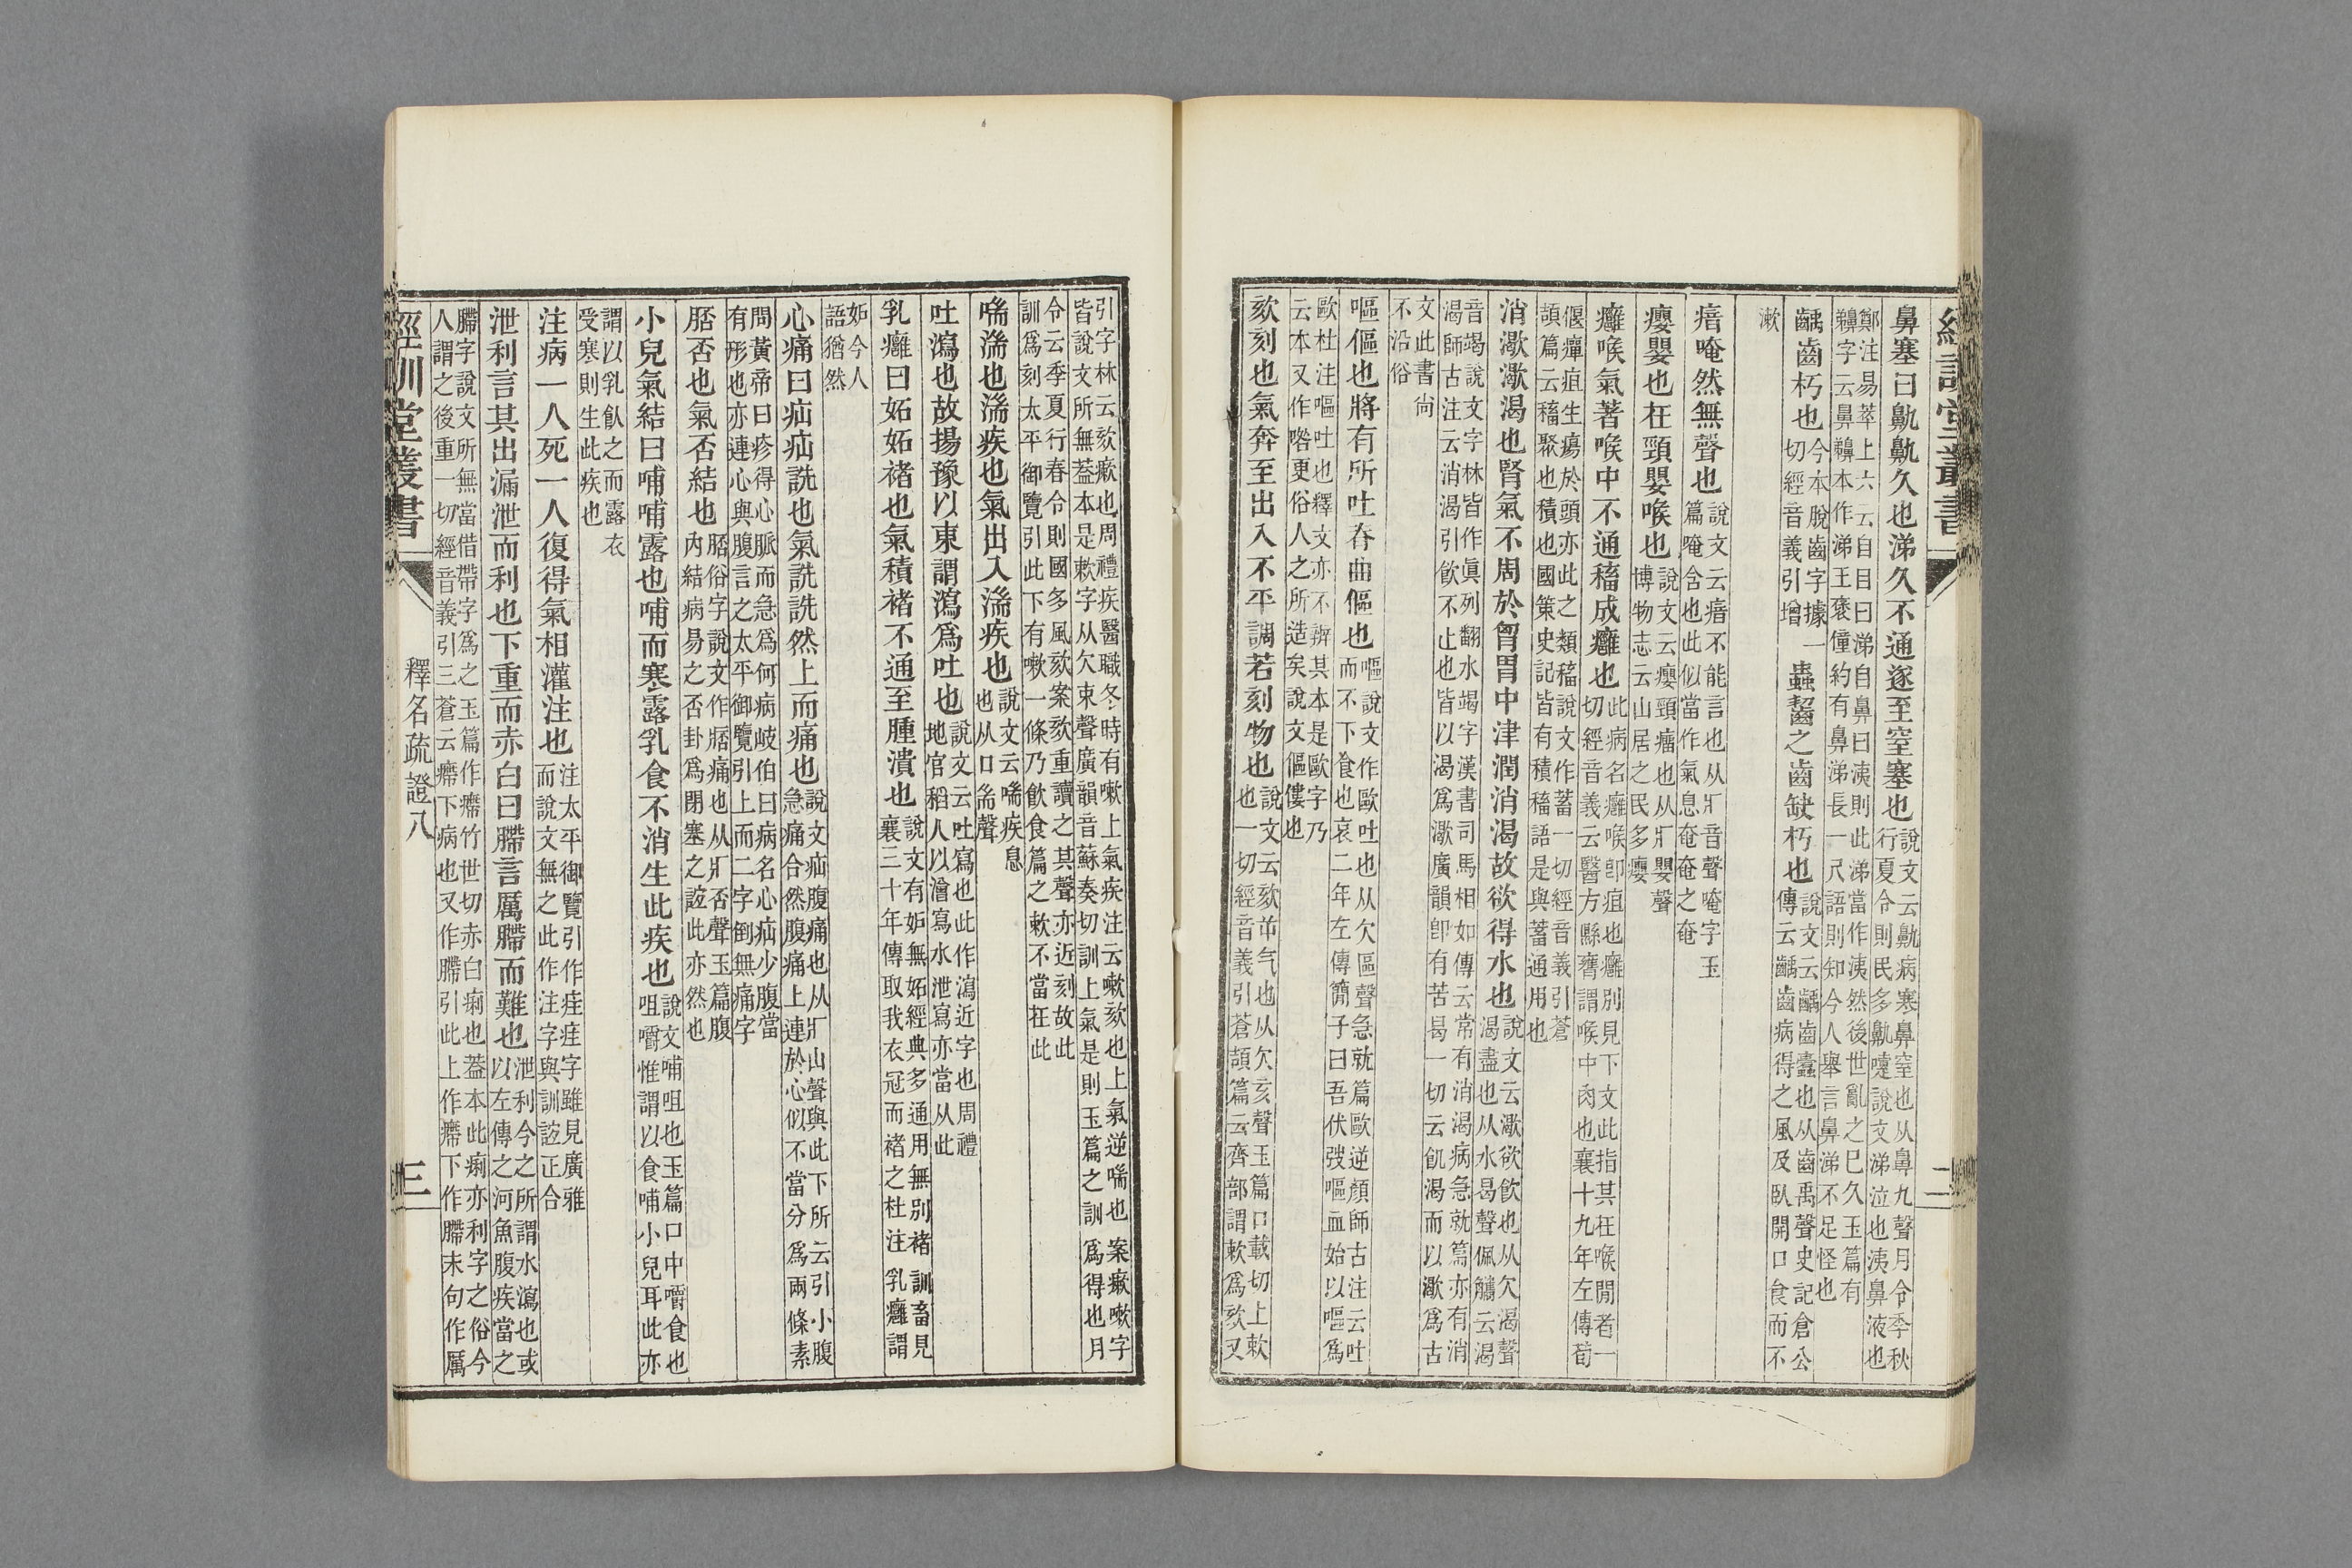 經訓堂叢書
二
鼻塞曰鼽鼽久也涕久不通遂至窒塞也說文云鼽病寒鼻窒也从鼻九聲月令季秋
行夏令則民多鼽嚏說文涕泣也洟鼻液也
鄭注易萃上六云自目曰涕自鼻曰洟則此涕當作洟然後世亂之巳久玉篇有
字云鼻本作涕王褒僮約有鼻涕長一尺語則知今人舉言鼻涕不足怪也
齲齒朽也今本脫齒字據一
切經音義引增
蟲齧之齒缺朽也說文云齲齒蠹也从齒禹聲史記倉公
傳云齲齒病得之風及臥開口食而不
漱
瘖唵然無聲也說文云瘖不能言也从疒音聲唵字玉
篇唵含也此似當作氣息奄奄之奄
癭嬰也在頸嬰喉也說文云癭頸瘤也从疒嬰聲
博物志云山居之民多癭
癰喉氣著喉中不通稸成癰也此病名癰喉卽疽也癰別見下文此指其在喉閒者一
切經音義云醫方縣癰謂喉中肉也襄十九年左傳荀
偃癉疽生瘍於頭亦此之類稸說文作蓄一切經音義引蒼
頡篇云稸聚也積也國策史記皆有積稸語是與蓄通用也
消㵣㵣渴也腎氣不周於胷胃中津潤消渴故欲得水也說文云㵣欲飮也从欠渴聲
渴盡也从水曷聲佩觿云渴
音竭說文字林皆作眞列翻水竭字漢書司馬相如傳云常有消渴病急就篇亦有消
渴師古注云消渴引飮不止也皆以渴爲㵣廣韻卽有苦曷一切云飢渴而以㵣爲古
文此書尙
不沿俗
嘔傴也將有所吐脊曲傴也嘔說文作歐吐也从欠區聲急就篇歐逆顏師古注云吐
而不下食也哀二年左傳簡子曰吾伏弢嘔血始以嘔爲
歐杜注嘔吐也釋文亦不辨其本是歐字乃
云本又作喀更俗人之所造矣說文傴僂也
欬刻也氣奔至出入不平調若刻物也說文云欬屰气也从欠亥聲玉篇口載切上欶
也一切經音義引蒼頡篇云齊部謂欶爲欬又
引字林云欬瘶也周禮疾醫職冬時有嗽上氣疾注云嗽欬也上氣逆喘也案瘶嗽字
皆說文所無葢本是欶字从欠束聲廣韻音蘇奏切訓上氣是則玉篇之訓爲得也月
令云季夏行春令則國多風欬案欬重讀之其聲亦近刻故此
訓爲刻太平御覽引此下有嗽一條乃飮食篇之欶不當在此
喘湍也湍疾也氣出入湍疾也說文云喘疾息
也从口耑聲
吐瀉也故揚豫以東謂瀉爲吐也說文云吐寫也此作瀉近字也周禮
地官稻人以澮寫水泄寫亦當从此
乳癰曰妬妬褚也氣積褚不通至腫潰也說文有妒無妬經典多通用無別褚訓畜見
襄三十年傳取我衣冠而褚之杜注乳癰謂
妬今人
語猶然
心痛曰疝疝詵也氣詵詵然上而痛也說文疝腹痛也从疒山聲與此下所云引小腹
急痛合然腹痛上連於心似不當分爲兩條素
問黃帝曰疹得心脈而急爲何病岐伯曰病名心疝少腹當
有形也亦連心與腹言之太平御覽引上而二字倒無痛字
脴否也氣否結也脴俗字說文作痞痛也从疒否聲玉篇腹
內結病易之否卦爲閉塞之誼此亦然也
小兒氣結曰哺哺露也哺而寒露乳食不消生此疾也說文哺咀也玉篇口中嚼食也
咀嚼惟謂以食哺小兒耳此亦
謂以乳飮之而露衣
受寒則生此疾也
注病一人死一人復得氣相灌注也注太平御覽引作疰疰字雖見廣雅
而說文無之此作注字與訓誼正合
泄利言其出漏泄而利也下重而赤白曰䐭言厲䐭而難也泄利今之所謂水瀉也或
以左傳之河魚腹疾當之
䐭字說文所無當借帶字爲之玉篇作㿃竹世切赤白痢也葢本此痢亦利字之俗今
人謂之後重一切經音義引三蒼云㿃下病也又作䐭引此上作㿃下作䐭末句作厲
經訓堂叢書
釋名疏證八
三